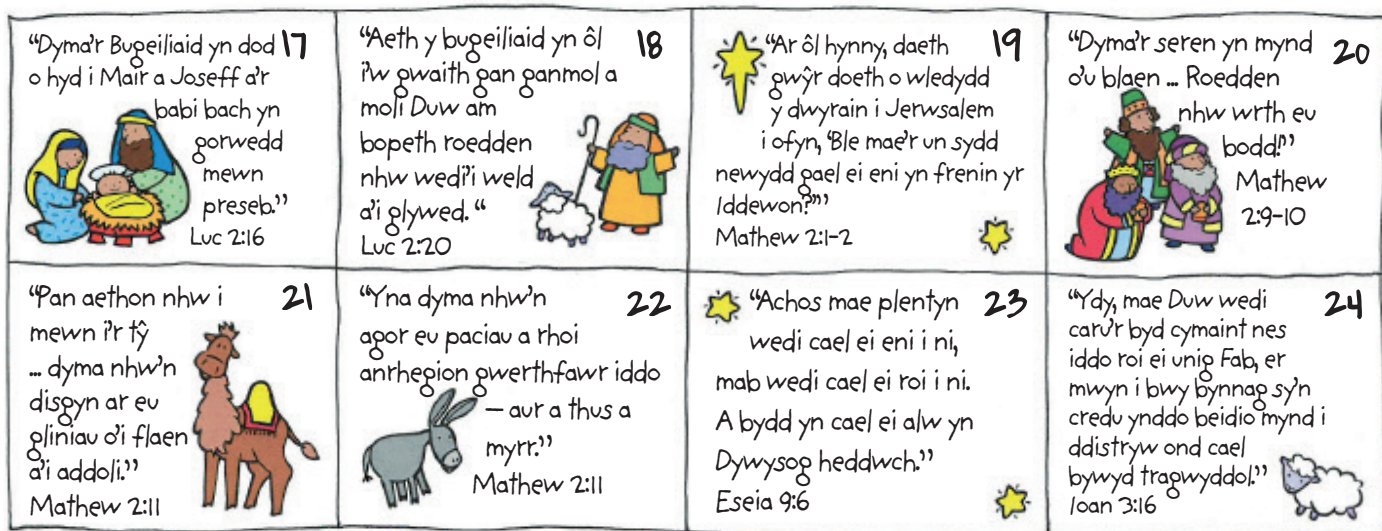 "Dyma'r Bugeiliaid yn dod
17
o hyd i Mair a Joseff a'r
babi bach yn
gorwedd
mewn
preseb."
Luc 2:16
"Aeth y bugeiliaid yn ôl
18
i'w gwaith gan ganmol a
moli Duw am
bopeth roedden
nhw wedi'i weld
a'i glywed. "
Luc 2:20
"Ar ôl hynny, daeth
19
gwŷr doeth o wledydd
y dwyrain i Jerwsalem
i ofyn, 'Ble mae'r un sydd
newydd gael ei eni yn frenin yr
Iddewon?'"
Mathew 2:1-2
"Dyma'r seren yn mynd
20
o'u blaen ... Roedden
nhw wrth eu
bodd!"
Mathew
2:9-10
"Pan aethon nhw i
21
mewn i'r tŷ
... dyma nhw'n
disgyn ar eu
gliniau o'i flaen
a'i addoli."
Mathew 2:11
"Yna dyma nhw'n
22
agor eu paciau a rhoi
anrhegion gwerthfawr iddo
— aur a thus a
myrr."
Mathew 2:11
"Achos mae plentyn
23
wedi cael ei eni i ni,
mab wedi cael ei roi i ni.
A bydd yn cael ei alw yn
Dywysog heddwch."
Eseia 9:6
"Ydy, mae Duw wedi
24
caru'r byd cymaint nes
iddo roi ei unig Fab, er
mwyn i bwy bynnag sy'n
credu ynddo beidio mynd i
ddistryw ond cael
bywyd tragwyddol."
Ioan 3:16